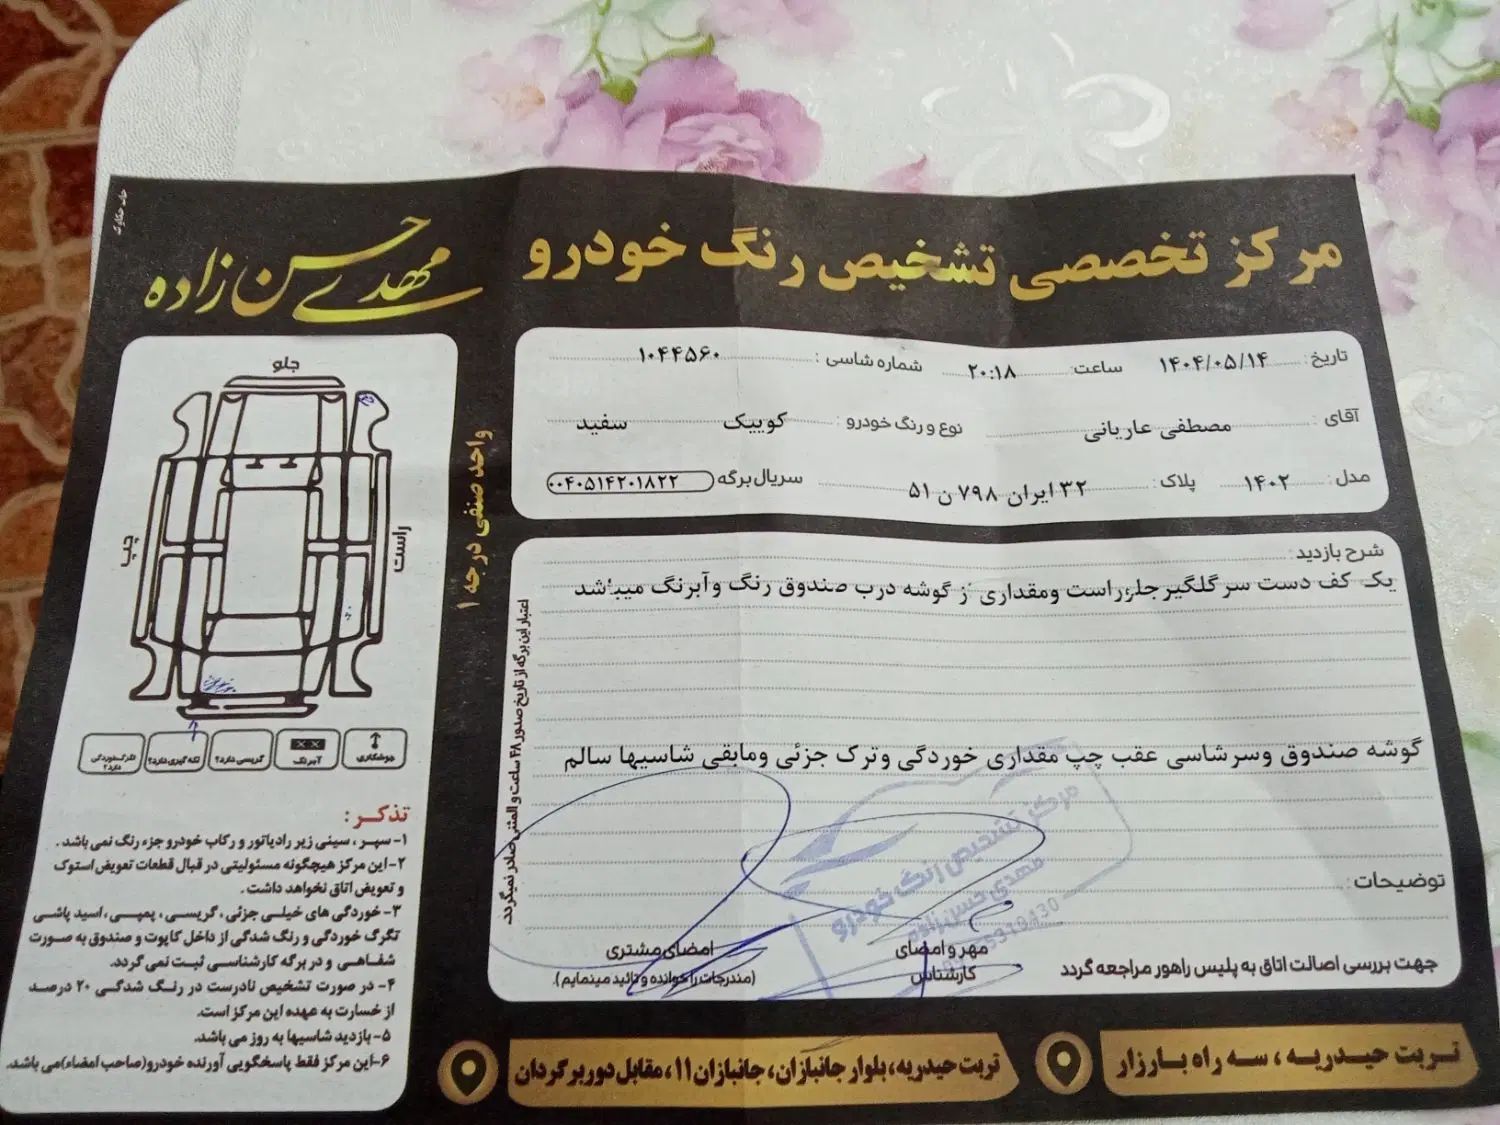 مرکز تخصصی تشخیص رنگ خودرو
مهدی حسن زاده
چاپ حکاوک
تاریخ: ۱۴۰۴/۰۵/۱۴ ساعت: ۲۰:۱۸ شماره شاسی: ۱۰۴۴۵۶۰
آقای: مصطفی عاربانی نوع و رنگ خودرو: کوییک سفید
مدل: ۱۴۰۲ پلاک: ۳۲ ایران ۷۹۸ ن ۵۱ سریال برگه: ۰۰۴۰۵۱۴۲۰۱۸۲۲
شرح بازدید:
یک کف دست سر گلگیر جلو راست ومقداری ز گوشه درب صندوق رنگ وآبرنگ میباشد
گوشه صندوق وسرشاسی عقب چپ مقداری خوردگی وترک جزئی ومابقی شاسیها سالم
توضیحات:
جهت بررسی اصالت اتاق به پلیس راهور مراجعه گردد
مهر و امضای
کارشناس
امضای مشتری
(مندرجات را خوانده و تائید مینمایم).
مرکز تشخیص رنگ خودرو
مهدی حسن زاده
اعتبار این برگه از تاریخ صدور ۴۸ ساعت و المثنی صادر نمیگردد.
واحد صنفی درجه ۱
جلو
چپ
راست
جوشکاری
آبرنگ
گریسی دارد؟
لکه گیری دارد؟
تگرگ خوردگی دارد؟
تذکر:
۱- سپر ، سینی زیر رادیاتور و رکاب خودرو جزء رنگ نمی باشد .
۲- این مرکز هیچگونه مسئولیتی در قبال قطعات تعویض استوک
و تعویض اتاق نخواهد داشت .
۳- خوردگی های خیلی جزئی ، گریسی ، پمپی ، اسید پاشی
تگرگ خوردگی و رنگ شدگی از داخل کاپوت و صندوق به صورت
شفاهی و در برگه کارشناسی ثبت نمی گردد.
۴- در صورت تشخیص نادرست در رنگ شدگی ۲۰ درصد
از خسارت به عهده این مرکز است.
۵- بازدید شاسیها به روز می باشد.
۶- این مرکز فقط پاسخگویی آورنده خودرو(صاحب امضاء)می باشد.
تربت حیدریه ، سه راه بارزار
تربت حیدریه، بلوار جانبازان، جانبازان ۱۱ ، مقابل دوربرگردان